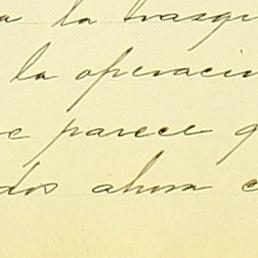 a la trasqu
la operació
e parece q
dos ahora c